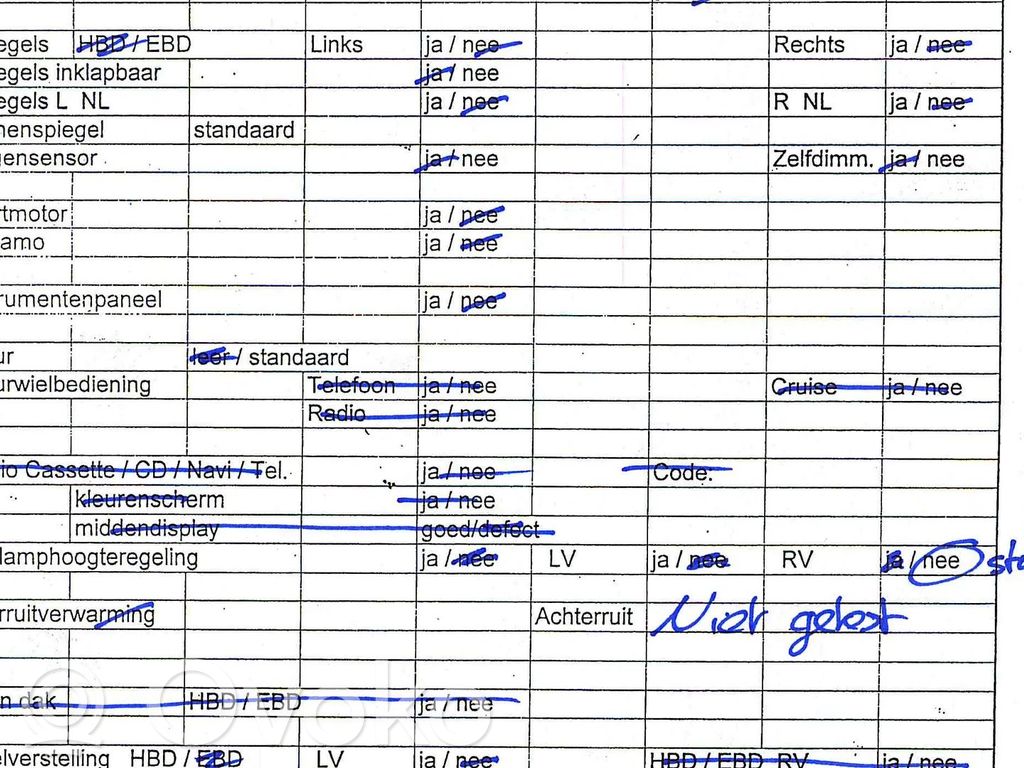 egels HBD / EBD Links ja / nee Rechts ja / nee
egels inklapbaar ja / nee
egels L NL ja / nee R NL ja / nee
nenspiegel standaard
gensensor ja / nee Zelfdimm. ja / nee
rtmotor ja / nee
amo ja / nee
rumentenpaneel ja / nee
ur leer / standaard
urwielbediening Telefoon ja / nee Cruise ja / nee
Radio ja / nee
io Cassette / CD / Navi / Tel. ja / nee Code.
kleurenscherm ja / nee
middendisplay goed/defect
lamphoogteregeling ja / nee LV ja / nee RV ja / nee
rruitverwarming Achterruit Niet getest
n dak HBD / EBD ja / nee
elverstelling HBD / EBD LV ja / nee HBD / EBD RV ja / nee
Ovoko